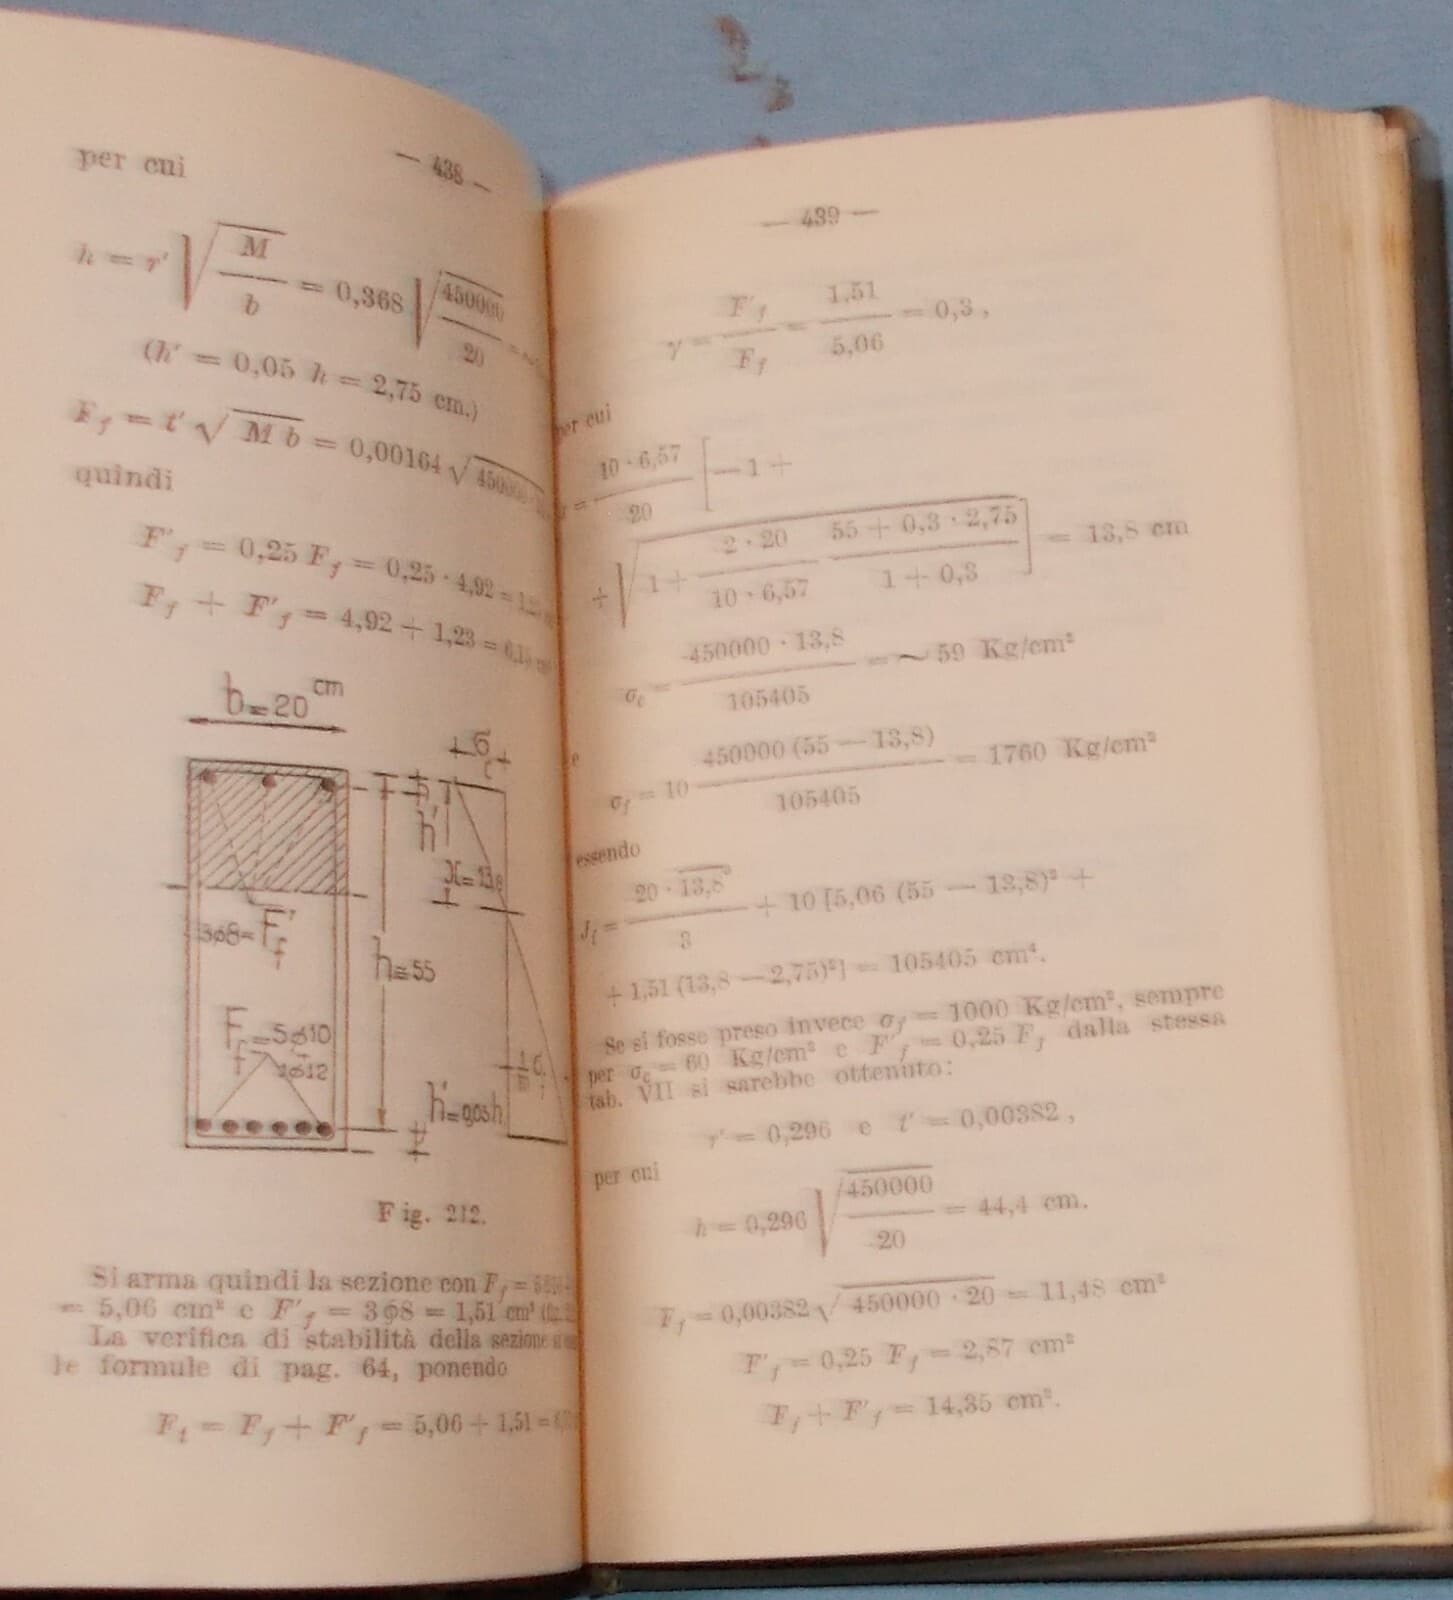 — 438 —
per cui
h = r' √ M / b = 0,368 √ 450000 / 20 =
(h' = 0,05 h = 2,75 cm.)
F_f = t' √ M b = 0,00164 √ 450000
quindi
F'_f = 0,25 F_f = 0,25 · 4,92 = 1,23
F_f + F'_f = 4,92 + 1,23 = 6,15
b = 20 cm
σ_c
h'
x = 13,8
3ø8 = F'_f
h = 55
F_f = 5ø10
1ø12
h' = 0,05 h
Fig. 212.
Si arma quindi la sezione con F_f =
= 5,06 cm² e F'_f = 3 ø 8 = 1,51 cm²
La verifica di stabilità della sezione
le formule di pag. 64, ponendo
F_t = F_f + F'_f = 5,06 + 1,51 =
— 439 —
γ = F'_f / F_f = 1,51 / 5,06 = 0,3 ,
per cui
x = 10 · 6,57 / 20 [ — 1 +
+ √ 1 + 2 · 20 / 10 · 6,57 · 55 + 0,3 · 2,75 / 1 + 0,3 ] = 13,8 cm
σ_c = 450000 · 13,8 / 105405 = ~ 59 Kg/cm²
e
σ_f = 10 450000 (55 — 13,8) / 105405 = 1760 Kg/cm²
essendo
J_i = 20 · 13,8³ / 3 + 10 [5,06 (55 — 13,8)² +
+ 1,51 (13,8 — 2,75)²] = 105405 cm⁴.
Se si fosse preso invece σ_f = 1000 Kg/cm², sempre
per σ_c = 60 Kg/cm² e F'_f = 0,25 F_f dalla stessa
tab. VII si sarebbe ottenuto:
r' = 0,296 e t' = 0,00382 ,
per cui
h = 0,296 √ 450000 / 20 = 44,4 cm.
F_f = 0,00382 √ 450000 · 20 = 11,48 cm²
F'_f = 0,25 F_f = 2,87 cm²
F_f + F'_f = 14,35 cm².